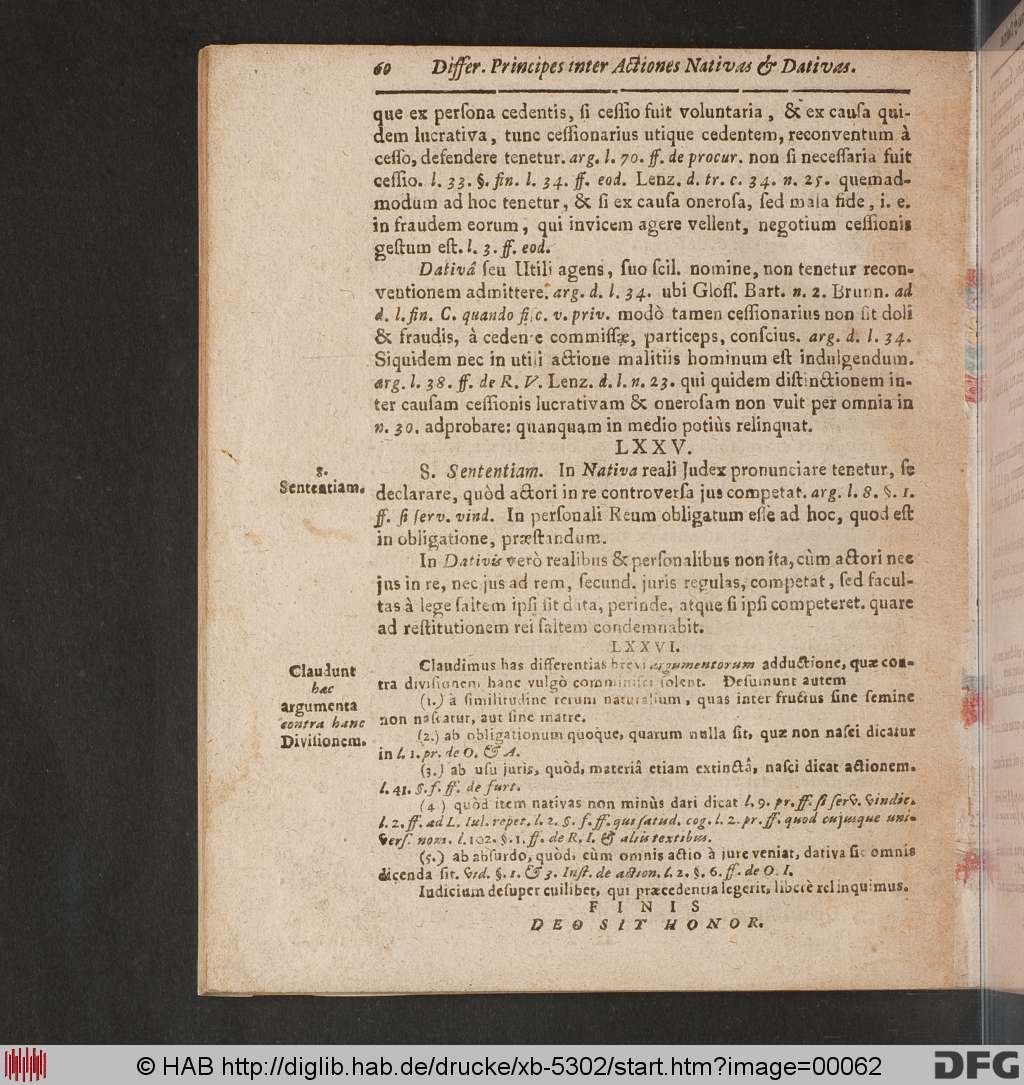 60 Differ. Principes inter Actiones Nativas & Dativas.
que ex persona cedentis, si cessio fuit voluntaria, & ex causa qui-
dem lucrativa, tunc cessionarius utique cedentem, reconventum à
cesso, defendere tenetur. arg. l. 70. ff. de procur. non si necessaria fuit
cessio. l. 33. §. fin. l. 34. ff. eod. Lenz. d. tr. c. 34. n. 25. quemad-
modum ad hoc tenetur, & si ex causa onerosa, sed mala fide, i. e.
in fraudem eorum, qui invicem agere vellent, negotium cessionis
gestum est. l. 3. ff. eod.
Dativâ seu Utili agens, suo scil. nomine, non tenetur recon-
ventionem admittere. arg. d. l. 34. ubi Gloss. Bart. n. 2. Brunn. ad
d. l. fin. C. quando fisc. v. priv. modò tamen cessionarius non sit doli
& fraudis, à cedente commissæ, particeps, conscius. arg. d. l. 34.
Siquidem nec in utili actione malitiis hominum est indulgendum.
arg. l. 38. ff. de R. V. Lenz. d. l. n. 23. qui quidem distinctionem in-
ter causam cessionis lucrativam & onerosam non vult per omnia in
n. 30. adprobare: quanquam in medio potiùs relinquat.
LXXV.
8.
Sententiam.
8. Sententiam. In Nativa reali Judex pronunciare tenetur, se
declarare, quòd actori in re controversa jus competat. arg. l. 8. §. 1.
ff. si serv. vind. In personali Reum obligatum esse ad hoc, quod est
in obligatione, præstandum.
In Dativis verò realibus & personalibus non ita, cùm actori nec
jus in re, nec jus ad rem, secund. juris regulas, competat, sed facul-
tas à lege saltem ipsi sit data, perinde, atque si ipsi competeret. quare
ad restitutionem rei saltem condemnabit.
LXXVI.
Claudunt
hac
argumenta
contra hanc
Divisionem.
Claudimus has differentias brevi argumentorum adductione, quæ con-
tra divisionem hanc vulgò comminisci solent. Desumunt autem
(1.) à similitudine rerum naturalium, quas inter fructus sine semine
non nascatur, aut sine matre.
(2.) ab obligationum quoque, quarum nulla sit, quæ non nasci dicatur
in l. 1. pr. de O. & A.
(3.) ab usu juris, quòd, materiâ etiam extinctâ, nasci dicat actionem.
l. 41. §. f. ff. de furt.
(4) quòd item nativas non minùs dari dicat l. 9. pr. ff. si serv. vindic.
l. 2. ff. ad L. Iul. repet. l. 2. §. f. ff. qui satisd. cog. l. 2. pr. ff. quod cujusque uni-
vers. nom. l. 102. §. 1. ff. de R. I. & aliis textibus.
(5.) ab absurdo, quòd, cùm omnis actio à jure veniat, dativa sic omnis
dicenda sit. vid. §. 1. & 3. Inst. de action. l. 2. §. 6. ff. de O. I.
Iudicium desuper cuilibet, qui præcedentia legerit, liberè relinquimus.
FINIS
DEO SIT HONOR.
© HAB http://diglib.hab.de/drucke/xb-5302/start.htm?image=00062
DFG